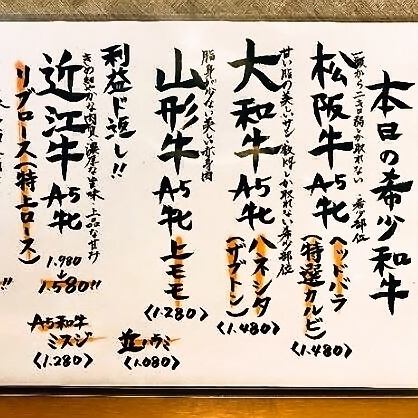 本日の希少和牛
一頭から二キロ弱しか取れない希少部位
松阪牛A5牝
ヘッドバラ
(特選カルビ)
〈1.480〉
甘い脂の美しいサシ 数㎏しか取れない希少部位
大和牛A5牝
ハネシタ
(ザブトン)
〈1.480〉
脂身が少ない美しい赤身肉
山形牛A5牝上モモ
〈1.280〉
並ハラミ
〈1.080〉
利益ド返し!!
きめ細やかな肉質 濃厚な旨味 上品な甘み
近江牛A5牝
1.980
↓
1.580!!
リブロース(特上ロース)
A5和牛
ミスジ
〈1.280〉